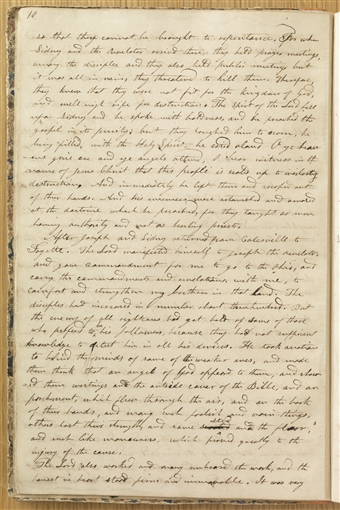 10
so that they cannot be brought to repentance. For when
Sidney and the Revelator arrived there, they held prayer meetings,
among the disciples and they also held public meetings but
it was all in vain, they threatened to kill them. Therefore,
they knew that they were not fit for the kingdom of God,
and well nigh ripe for destruction. The Spirit of the Lord fell
upon Sidney, and he spoke with boldness, and he preached the
gospel in its purity; but they laughed him to scorn, he
being filled, with the Holy Spirit, he cried aloud O ye heav-
ens give ear and ye angels attend, I bear witness in the
name of Jesus Christ that this people is sealed up to everlasting
destruction. And immediately he left them and escaped out
of their hands. And his enemies were astonished and amazed
at the doctrine which he preached, for they taught as men
having authority and not as hireling priests.
After Joseph and Sidney returned from Colesville to
Fayette. The Lord manifested himself to Joseph the Revelator
and gave commandment for me to go to the Ohio, and
carry the commandments and revelations, with me, to
comfort and strengthen my brethren in that land. The
disciples had increased in number about three hundred. But
the enemy of all righteous had got hold of some of those
who professed to be his followers, because they had not sufficient
knowledge to detect him in all his devices. He took a notion
to blind the minds of some of the weaker ones, and made
them think that an angel of God appeared to them, and showed
them writings on the outside cover of the Bible, and on
parchment, which flew through the air, and on the back
of their hands, and many such foolish and vain things,
others lost their strength, and some slid on the floor,
and such like maneuvers, which proved greatly to the
injury of the cause.
The Lord also worked, and many embraced the work, and the
honest in heart stood firm and immovable. It was very